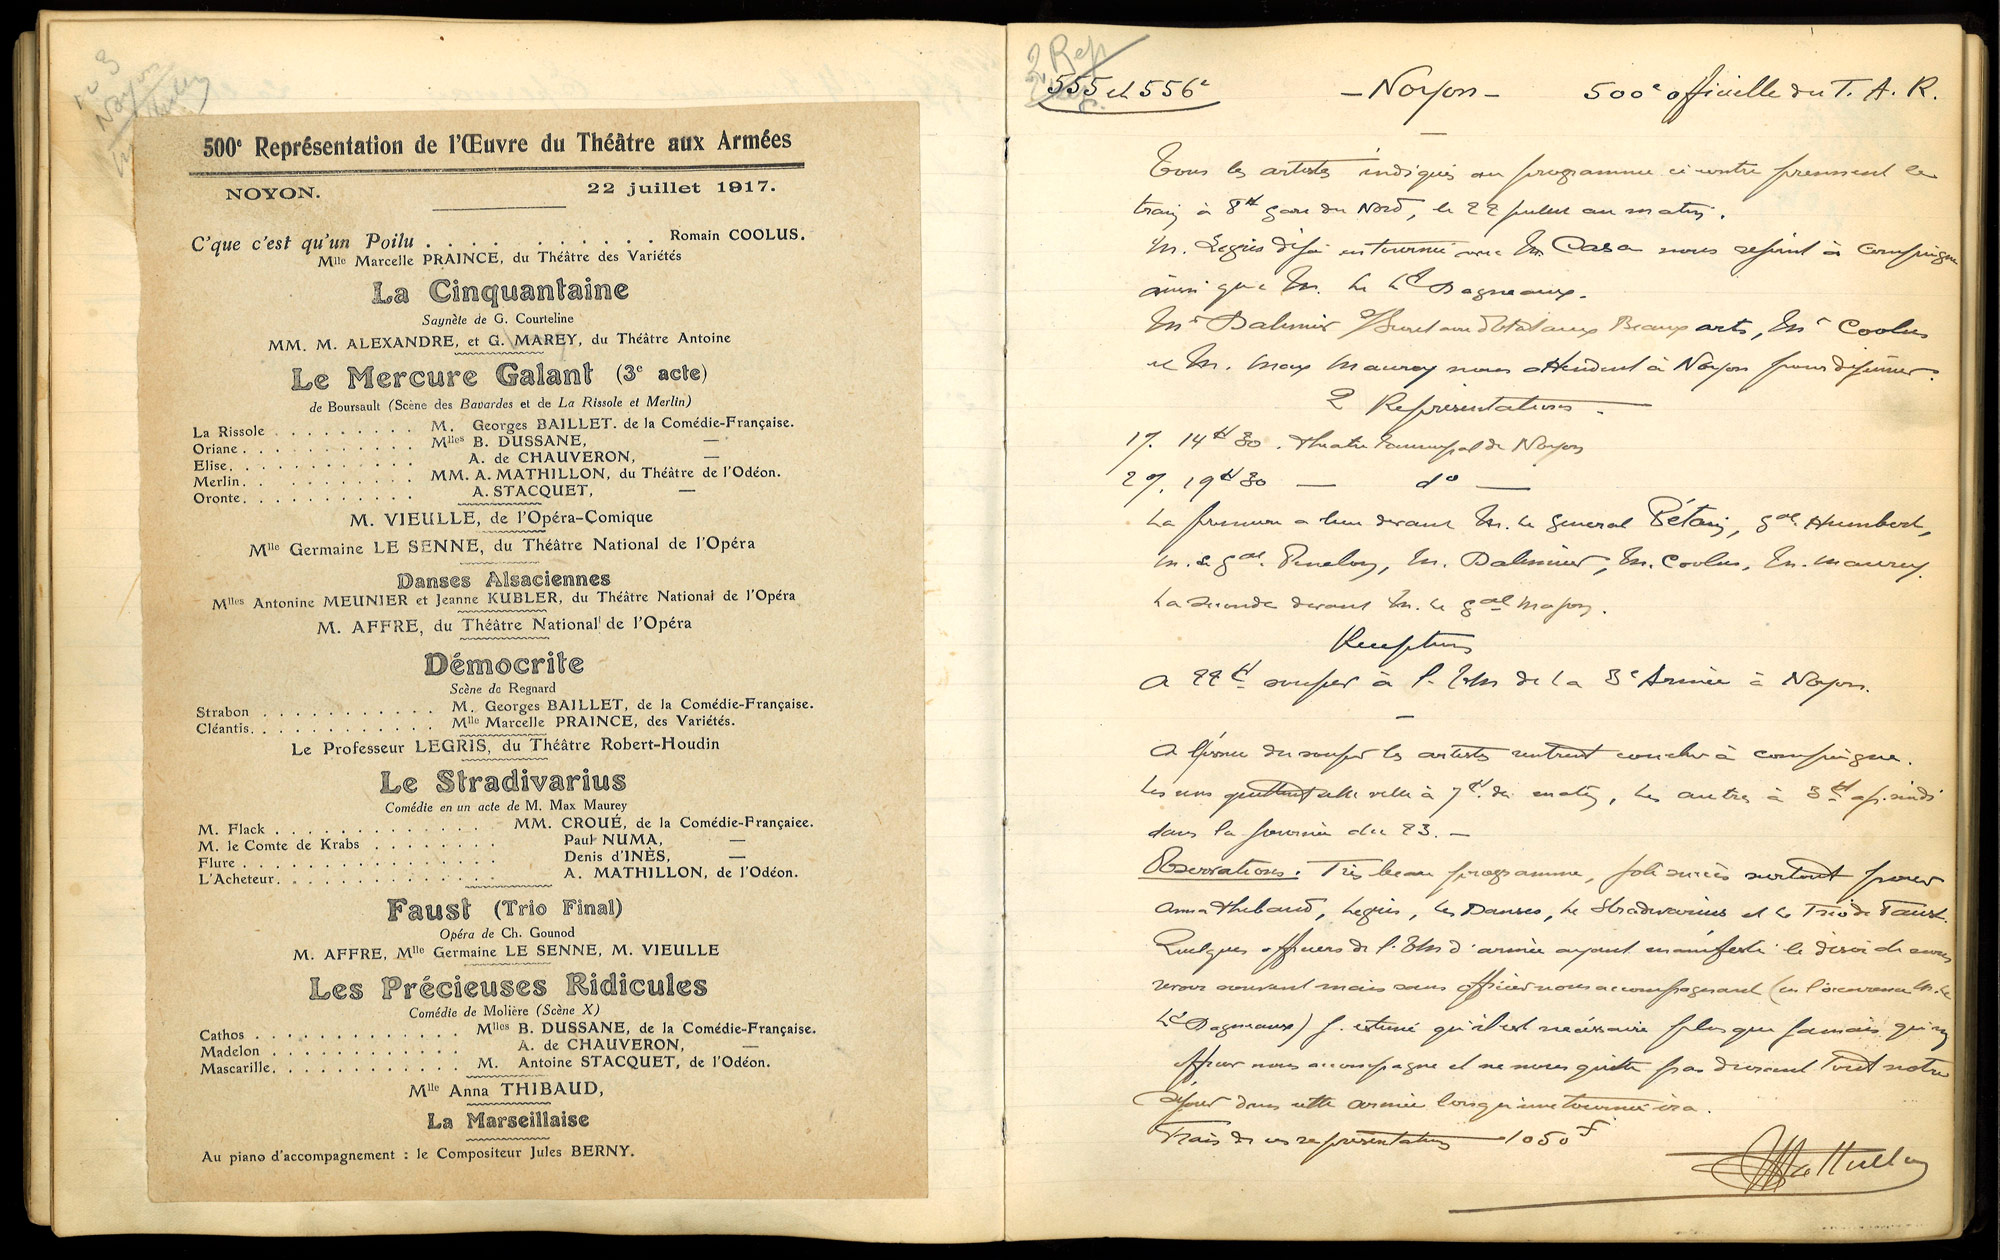 no 3
Noyon
500e Représentation de l'Œuvre du Théâtre aux Armées
NOYON. 22 juillet 1917.
C'que c'est qu'un Poilu . . . . . . . . . . . Romain COOLUS.
Mlle Marcelle PRAINCE, du Théâtre des Variétés
La Cinquantaine
Saynète de G. Courteline
MM. M. ALEXANDRE, et G. MAREY, du Théâtre Antoine
Le Mercure Galant (3e acte)
de Boursault (Scène des Bavardes et de La Rissole et Merlin)
La Rissole . . . . . . . . . M. Georges BAILLET. de la Comédie-Française.
Oriane . . . . . . . . . . . Mlles B. DUSSANE, —
Elise. . . . . . . . . . . . A. de CHAUVERON, —
Merlin. . . . . . . . . . . MM. A. MATHILLON, du Théâtre de l'Odéon.
Oronte. . . . . . . . . . . A. STACQUET, —
M. VIEULLE, de l'Opéra-Comique
Mlle Germaine LE SENNE, du Théâtre National de l'Opéra
Danses Alsaciennes
Mlles Antonine MEUNIER et Jeanne KUBLER, du Théâtre National de l'Opéra
M. AFFRE, du Théâtre National de l'Opéra
Démocrite
Scène de Regnard
Strabon . . . . . . . . . . . M. Georges BAILLET, de la Comédie-Française.
Cléantis. . . . . . . . . . . . Mlle Marcelle PRAINCE, des Variétés.
Le Professeur LEGRIS, du Théâtre Robert-Houdin
Le Stradivarius
Comédie en un acte de M. Max Maurey
M. Flack . . . . . . . . . . . . . MM. CROUÉ, de la Comédie-Françaiee.
M. le Comte de Krabs . . . . . . . . Paul NUMA, —
Flure . . . . . . . . . . . . . . . Denis d'INÈS, —
L'Acheteur. . . . . . . . . . . . . A. MATHILLON, de l'Odéon.
Faust (Trio Final)
Opéra de Ch. Gounod
M. AFFRE, Mlle Germaine LE SENNE, M. VIEULLE
Les Précieuses Ridicules
Comédie de Molière (Scène X)
Cathos . . . . . . . . . . . . Mlles B. DUSSANE, de la Comédie-Française.
Madelon . . . . . . . . . . . A. de CHAUVERON, —
Mascarille. . . . . . . . . . . . M. Antoine STACQUET, de l'Odéon.
Mlle Anna THIBAUD,
La Marseillaise
Au piano d'accompagnement : le Compositeur Jules BERNY.
2 Rep
555 et 556e – Noyon – 500e officielle du T. A. R.
Tous les artistes indiqués au programme ci contre prennent le
train à 8H gare du Nord, le 22 juillet au matin.
M. Legris déjà en tournée avec M. Casa nous rejoint à Compiègne
ainsi que M. le Lt Dagneaux.
Mr Dalimier s/Secretaire d'Etat aux Beaux arts, Mr Coolus
et M. Max Maurey nous attendent à Noyon pour déjeuner.
2 Représentations.
1°/. 14H30. Theatre municipal de Noyon
2°/. 19H30 — do —
La première a lieu devant M. le general Pétain, gal Humbert,
M. le gal. Penelon, M. Dalimier, M. Coolus, M. Maurey.
La seconde devant M. le gal Major.
Reception
A 22H souper à l'EM de la 3e Armée à Noyon.
A l'issue du souper les artistes rentrent coucher à Compiègne.
Les uns quittent cette ville à 7H du matin, les autres à 3H ap. midi
dans la journée du 23. —
Observations. Très beau programme, joli succès surtout pour
Anna Thibaud, Legris, les Danses, le Stradivarius et le Trio de Faust.
Quelques officiers de l'EM d'armée ayant manifesté le désir de nous
revoir souvent mais sans officier nous accompagnant (en l'occurence M. le
Lt Dagneaux) j'estime qu'il est nécessaire plus que jamais qu'un
officier nous accompagne et ne nous quitte pas durant tout notre
séjour dans cette armée lorsqu'une tournée ira.
Frais de ces représentations — 1050f
Mathillon